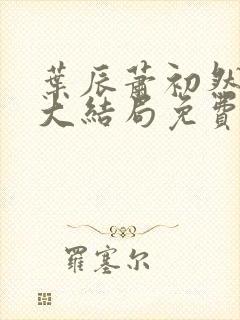 葉辰蕭初然
大結局免費
羅塞尔